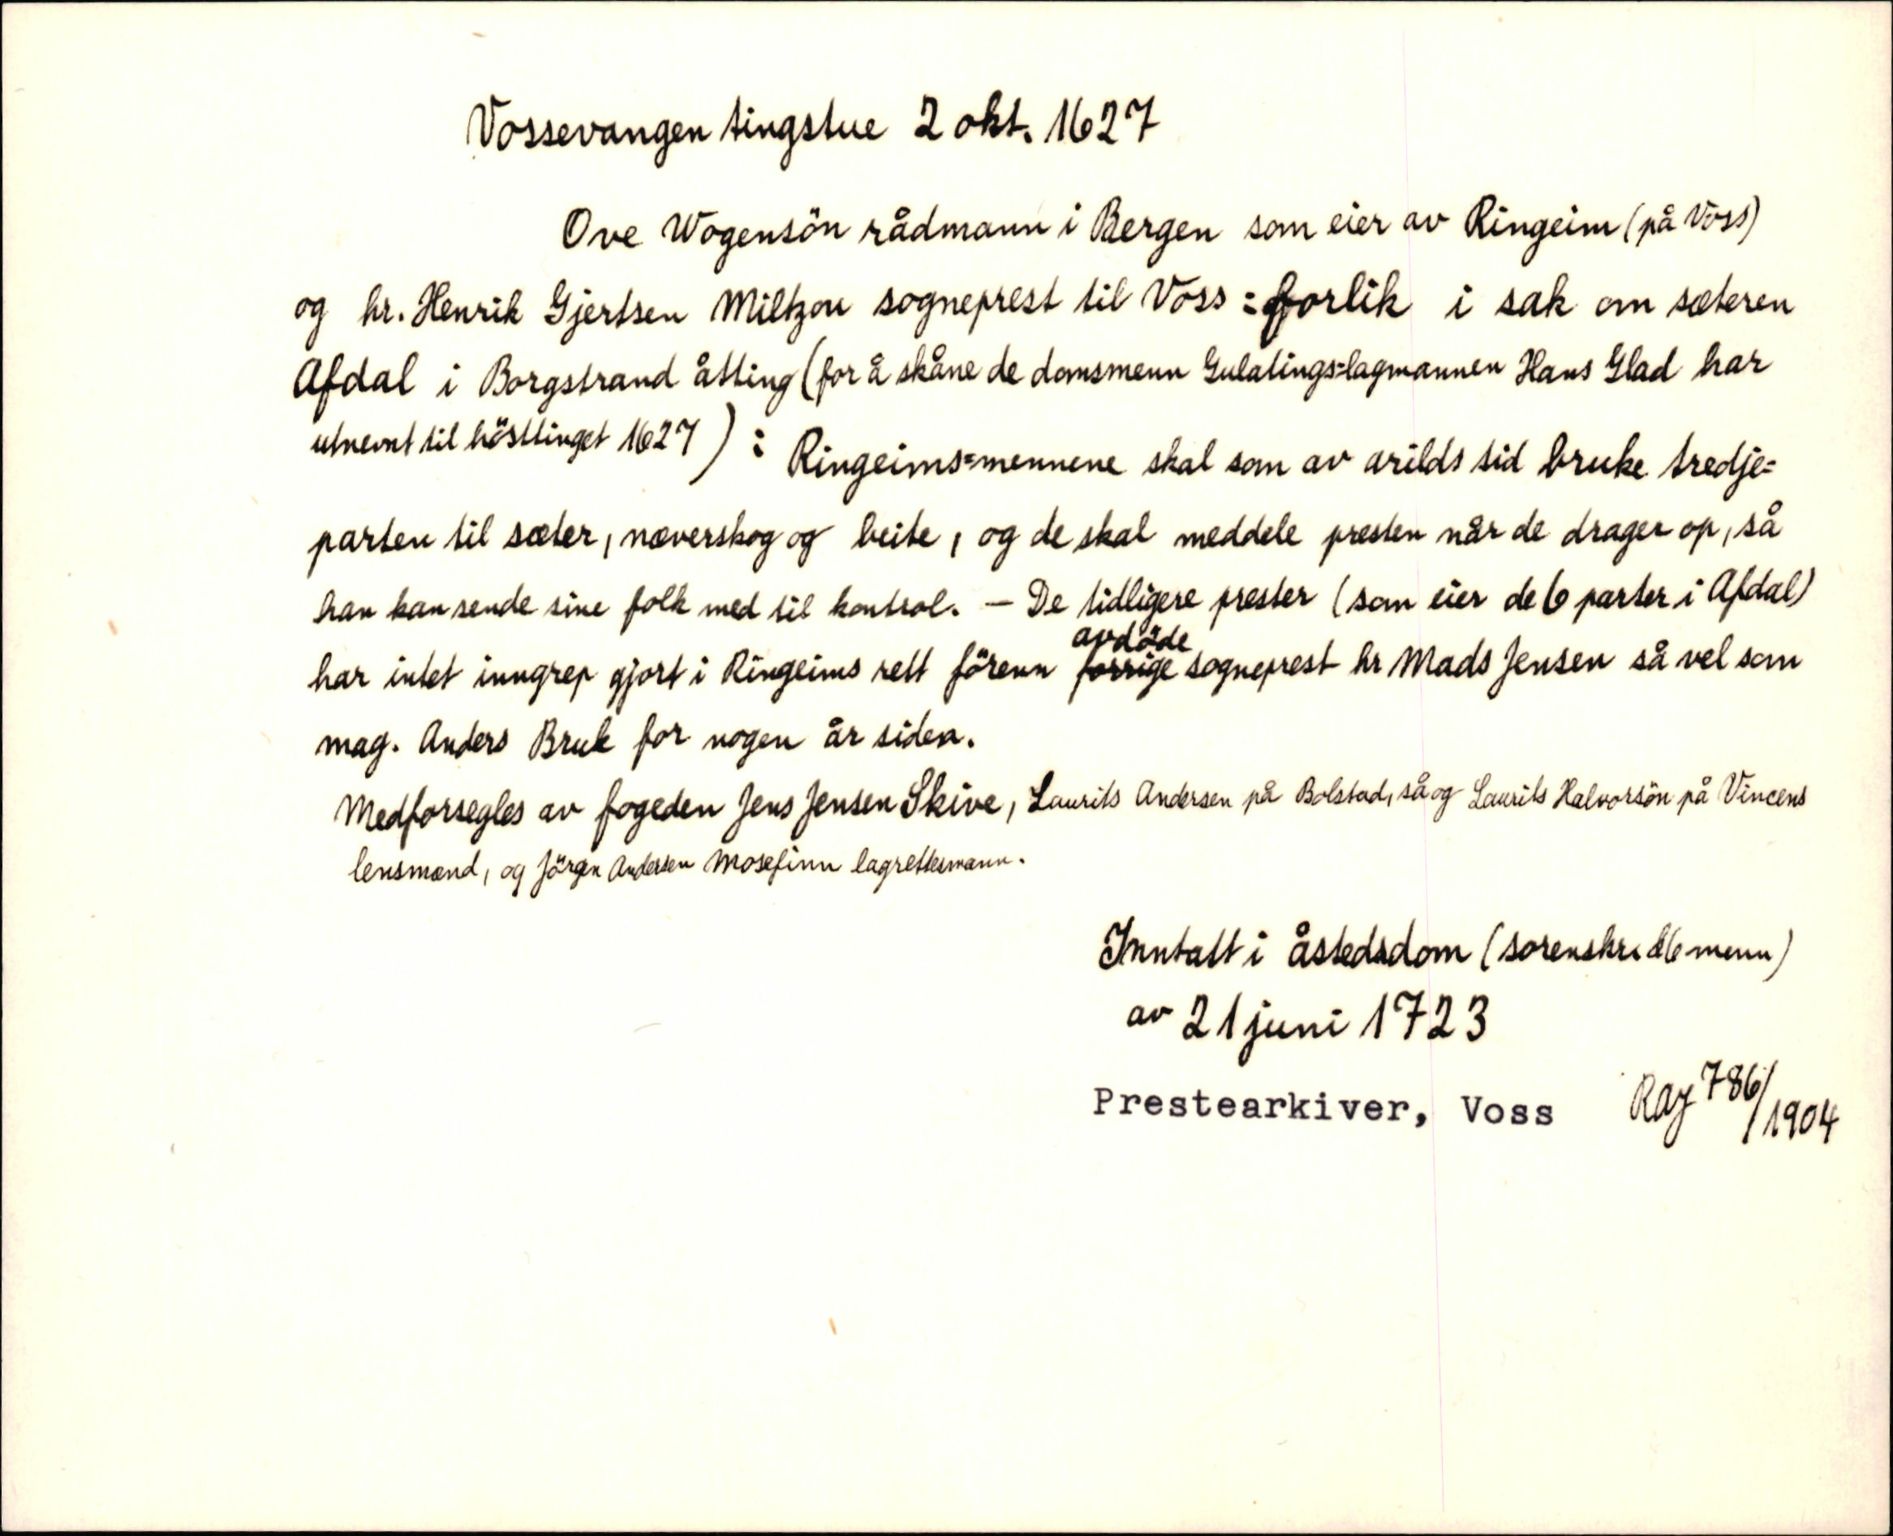 Vossevangen tingstue 2 okt. 1627
Ove Wogensön rådmann i Bergen som eier av Ringeim (på Voss)
og hr. Henrik Gjertsen Miltzou sogneprest til Voss : forlik i sak om sæteren
Afdal i Borgstrand åtting (for å skåne de domsmenn Gulatings=lagmannen Hans Glad har
utnevnt til hösttinget 1627) : Ringeims=mennene skal som av arilds tid bruke tredje=
parten til sæter, næverskog og beite, og de skal meddele presten når de drager op, så
han kan sende sine folk med til kontrol. – De tidligere prester (som eier de 6 parter i Afdal)
avdöde
har intet inngrep gjort i Ringeims rett förenn forrige sogneprest hr Mads Jensen så vel som
mag. Anders Bruk for nogen år siden.
Medforsegles av fogeden Jens Jensen Skive, Laurits Andersen på Bolstad, så og Laurits Halvorsön på Vincens
lensmænd, og Jörgen Andersen Mosefinn lagrettesmann.
Inntatt i åstedsdom (sorenskr. & 6 menn)
av 21 juni 1723
Prestearkiver, Voss
Raj 786/1904